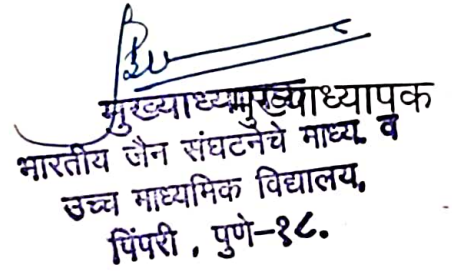 मुख्याध्यामुख्याध्यापक
भारतीय जैन संघटनेचे माध्य. व
उच्च माध्यमिक विद्यालय,
पिंपरी, पुणे-१८.